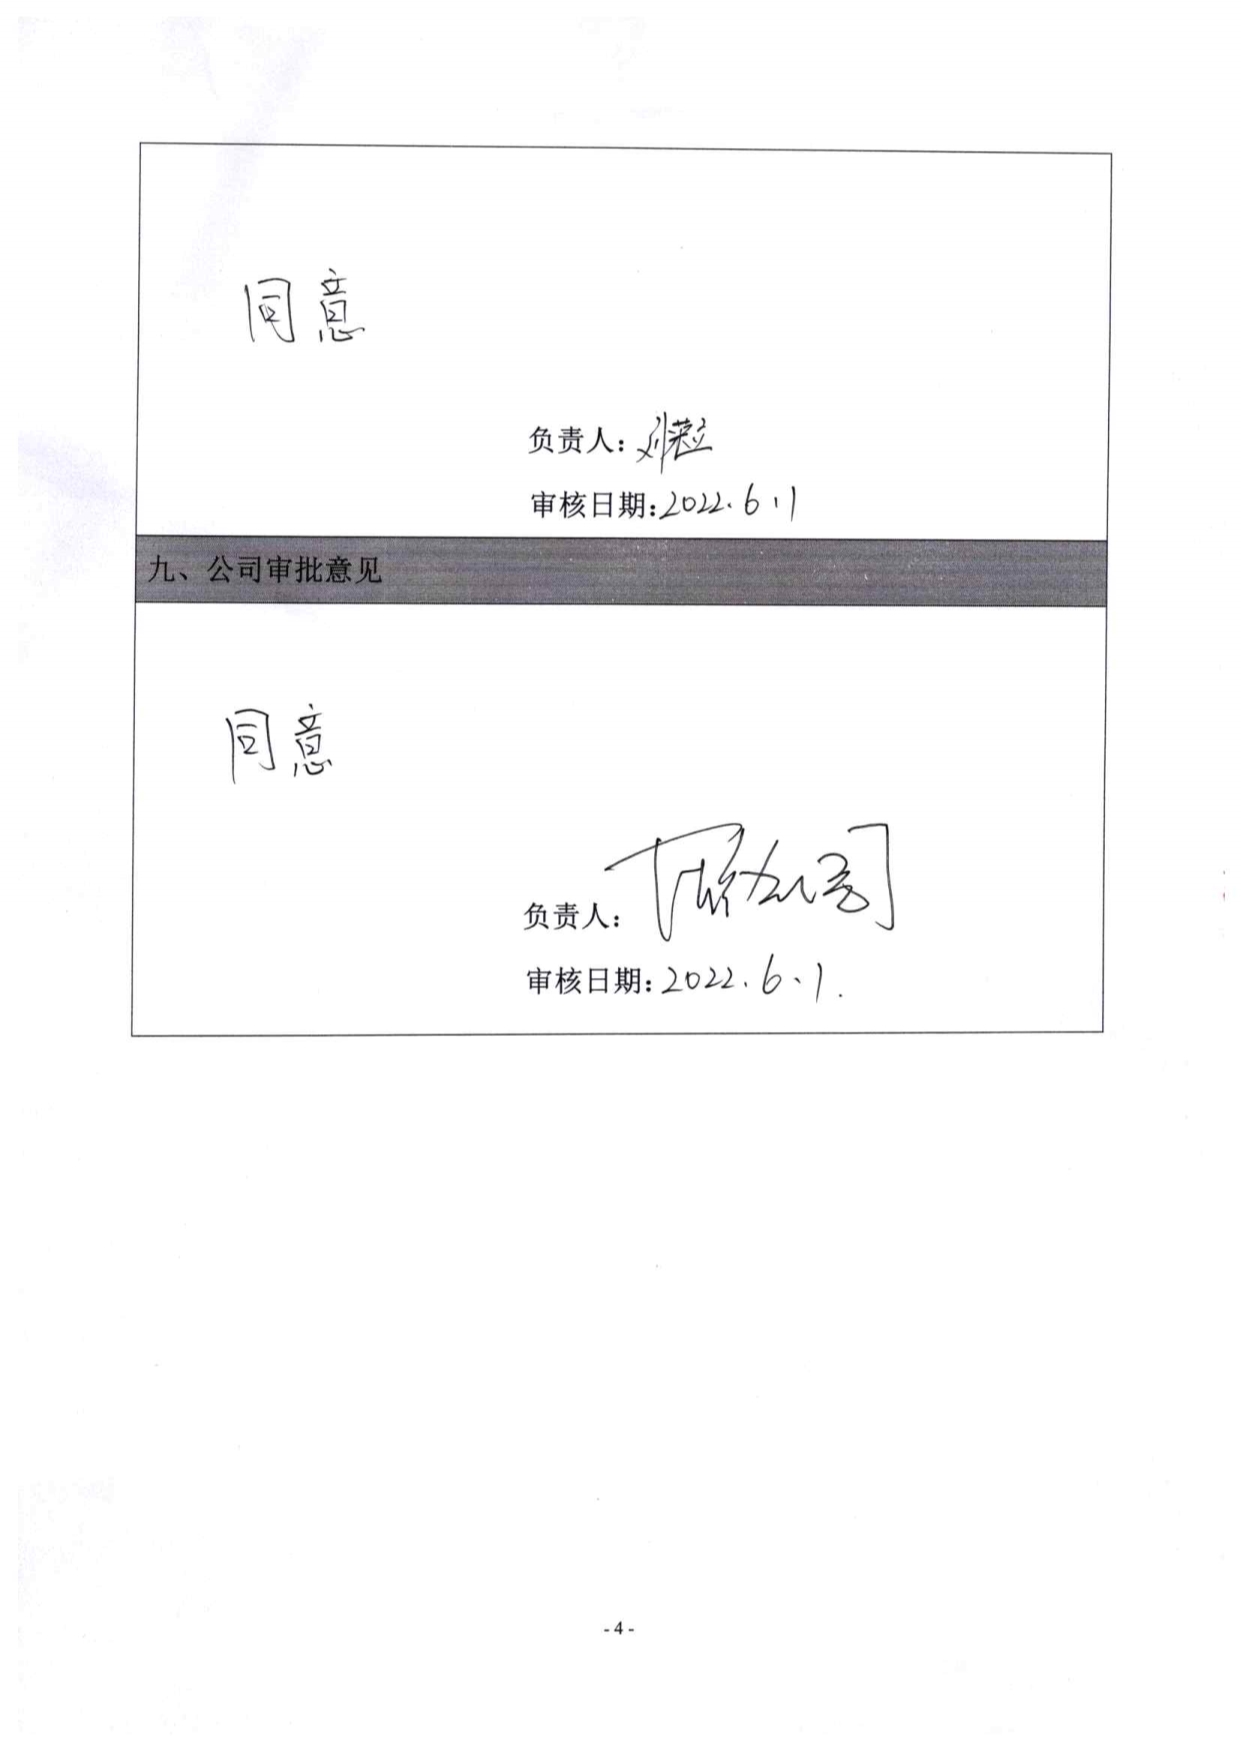 同意
负责人：刘
审核日期：2022.6.1
九、公司审批意见
同意
负责人：
审核日期：2022.6.1.
- 4 -